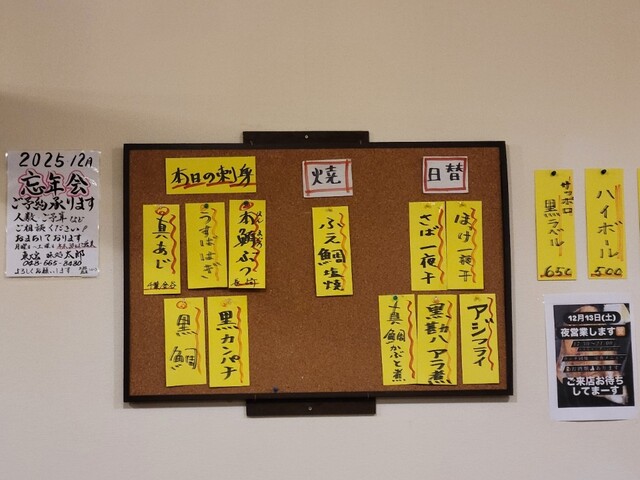 2025 12月
忘年会
ご予約承ります
人数、ご予算など
ご相談ください!
おまちしております
太郎
048-665-8480
よろしくお願いします
本日の刺身
真あじ
うすばはぎ
本鮪ぶつ
真鯛
黒カンパチ
焼
ぶえ鯛塩焼
日替
さば一夜干
ほっけ一夜干
真鯛かぶと煮
黒勘八アラ煮
アジフライ
サッポロ
黒ラベル
650
ハイボール
500
12月13日(土)
夜営業します
ご来店お待ち
してまーす